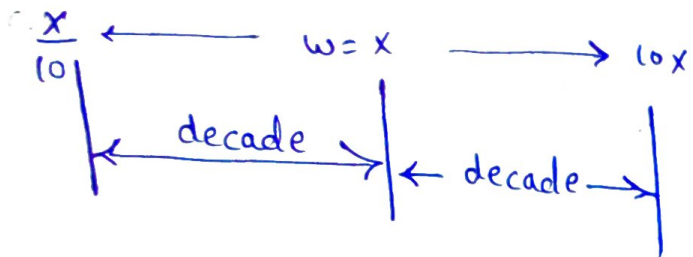 x/10 ← w = x → 10x
decade
decade